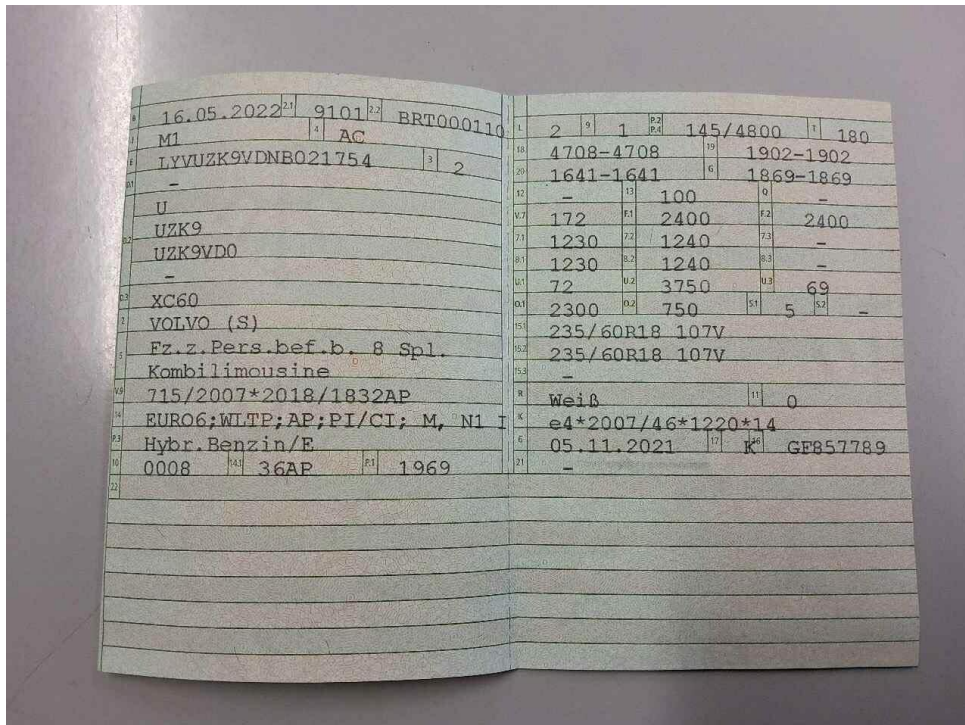 B 16.05.2022 2.1 9101 2.2 BRT000110
J M1 4 AC
E LYVUZK9VDNB021754 3 2
D.1 -
U
D.2 UZK9
UZK9VD0
-
D.3 XC60
2 VOLVO (S)
5 Fz.z.Pers.bef.b. 8 Spl.
Kombilimousine
V.9 715/2007*2018/1832AP
14 EURO6;WLTP;AP;PI/CI; M, N1 I
P.3 Hybr.Benzin/E
10 0008 14.1 36AP P.1 1969
22
L 2 9 1 P.2 P.4 145/4800 T 180
18 4708-4708 19 1902-1902
20 1641-1641 G 1869-1869
12 - 13 100 Q -
V.7 172 F.1 2400 F.2 2400
7.1 1230 7.2 1240 7.3 -
8.1 1230 8.2 1240 8.3 -
U.1 72 U.2 3750 U.3 69
O.1 2300 O.2 750 S.1 5 S.2 -
15.1 235/60R18 107V
15.2 235/60R18 107V
15.3 -
R Weiß 11 0
K e4*2007/46*1220*14
6 05.11.2021 17 K 16 GF857789
21 -